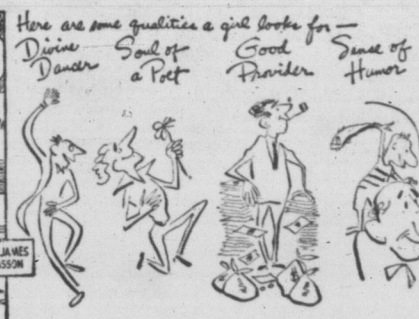 Here are some qualities a girl looks for—
Divine
Dancer
Soul of
a Poet
Good
Provider
Sense of
Humor
JAMES
SSON